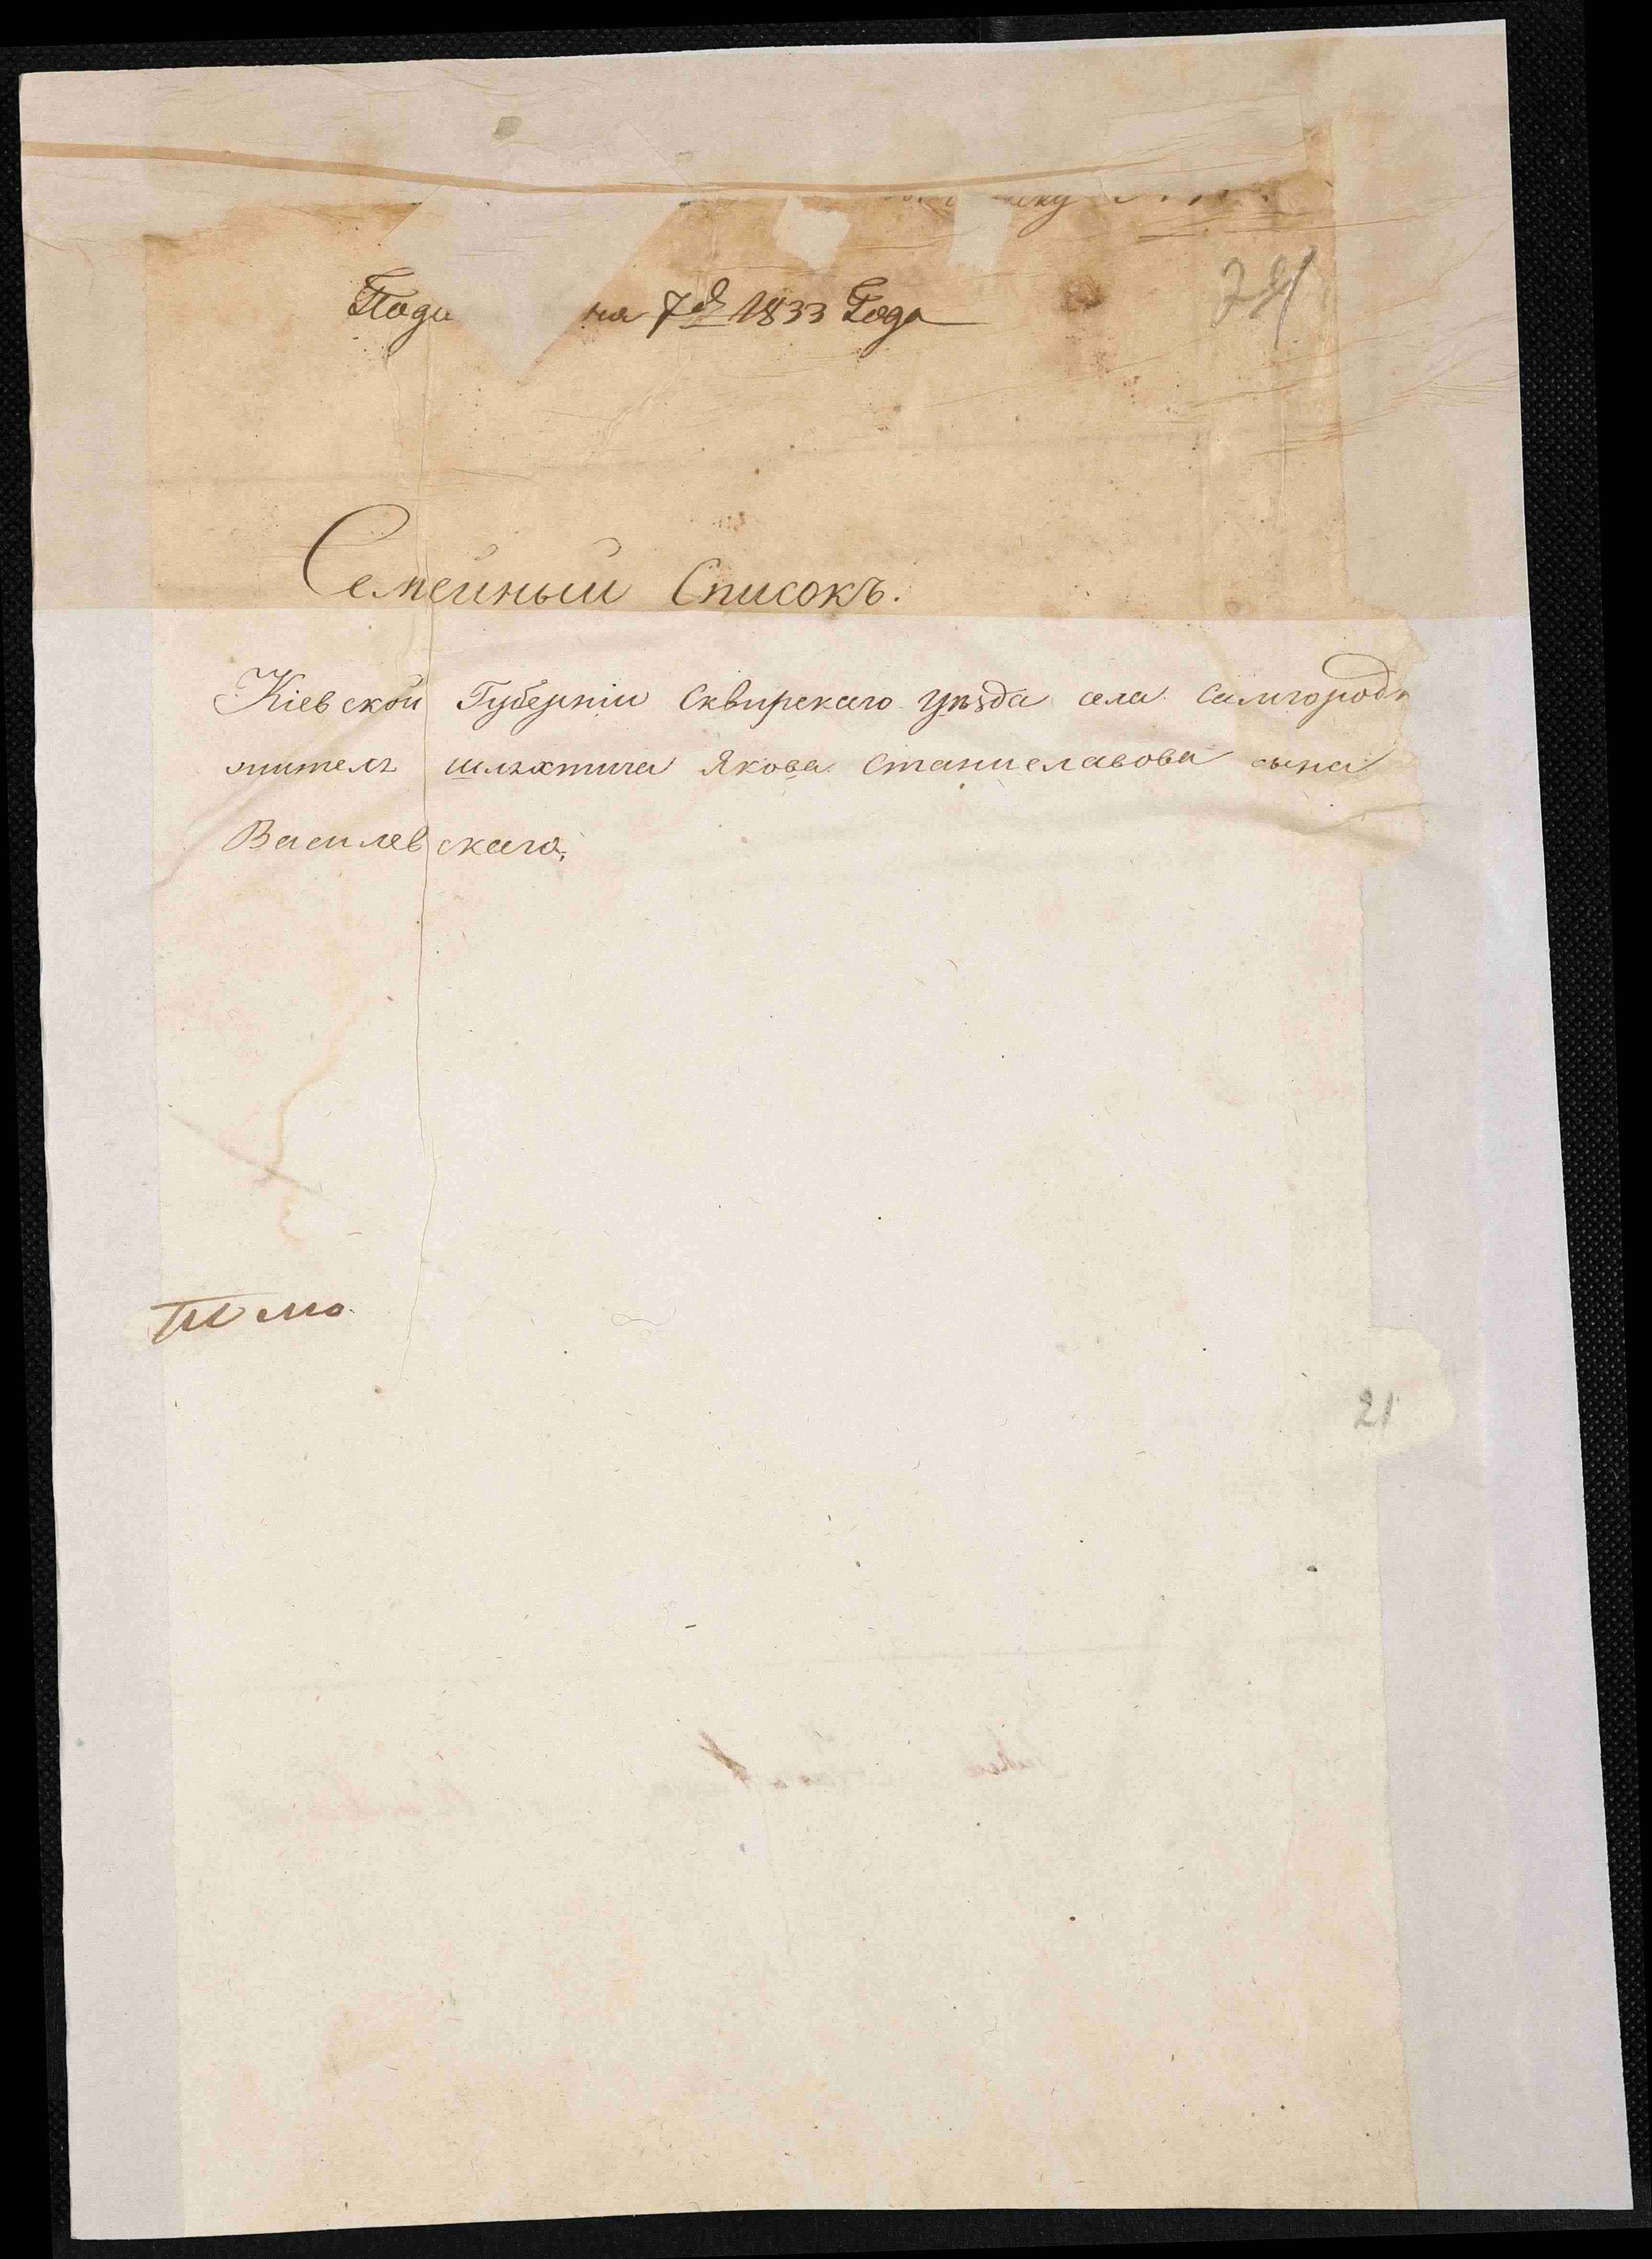 Пода на 7й 1833 Года
Семейный Списокъ.
Кіевской Губерніи Сквирскаго уѣзда села Самгородк
жителя шляхтича Якова Станиславова сына
Василевскаго,
21